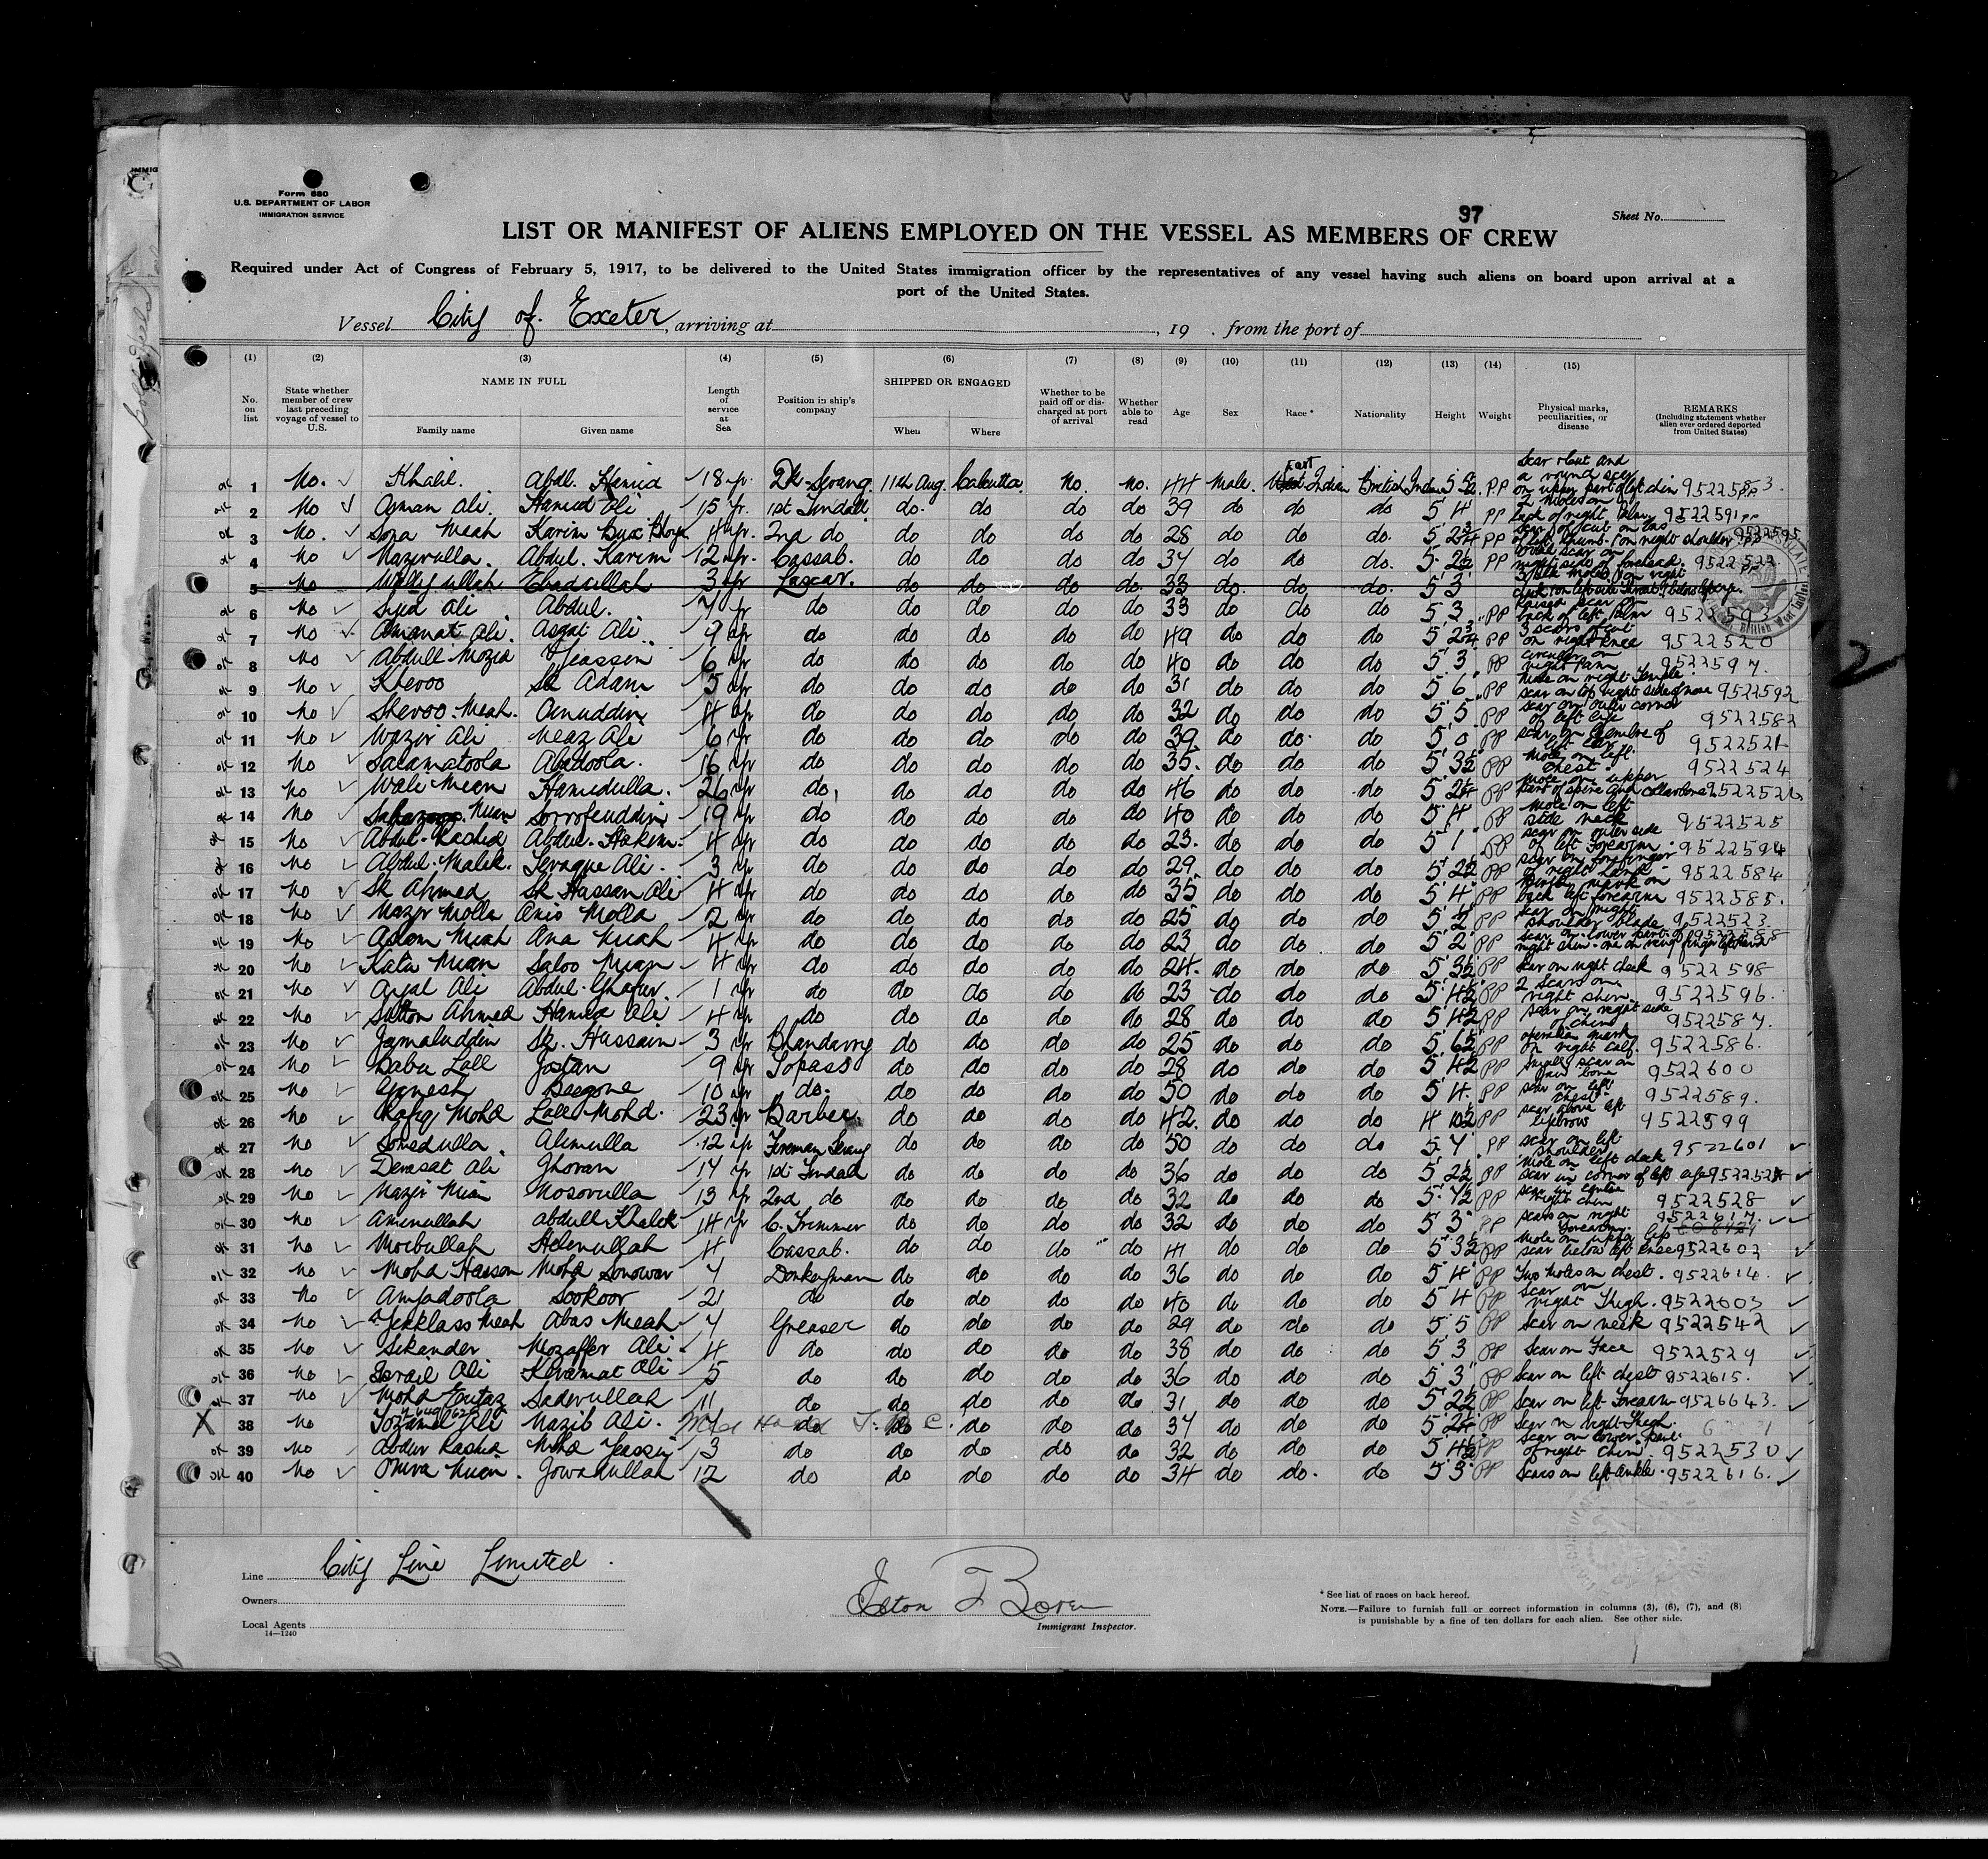 Form 680
U.S. DEPARTMENT OF LABOR
IMMIGRATION SERVICE
97
Sheet No.
LIST OR MANIFEST OF ALIENS EMPLOYED ON THE VESSEL AS MEMBERS OF CREW
Required under Act of Congress of February 5, 1917, to be delivered to the United States immigration officer by the representatives of any vessel having such aliens on board upon arrival at a
port of the United States.
Vessel City of Exeter, arriving at , 19 . from the port of
(1) (2) (3) (4) (5) (6) (7) (8) (9) (10) (11) (12) (13) (14) (15)
No. on list State whether member of crew last preceding voyage of vessel to U.S. NAME IN FULL Family name Given name Length of service at Sea Position in ship's company SHIPPED OR ENGAGED When Where Whether to be paid off or discharged at port of arrival Whether able to read Age Sex Race * Nationality Height Weight Physical marks, peculiarities, or disease REMARKS (Including statement whether alien ever ordered deported from United States)
ok 1 No. Khalil. Abdl. Hamid 18 yr. 2k Serang. 11th Aug. Calcutta. No. no. 44 Male. East Indian British Indn PP
ok 2 No Ayman Ali. Hamid Ali 15 yr. 1st Tindall do. do do do 39 do do do 5 4 PP 2 moles on back of right Palm 9522591 PP
ok 3 No. Sona Meah Karim Bux 4 yr. 2nd do do do do do 28 do do do. 5 2¾ PP 9522595
ok 4 No Nazirulla. Abdul. Karim 12 yr. Cassab. do do do do 34 do do do. 5 2½ PP scar on right side of forehead. 9522522
5 No Ebadullah 3 yr Lascar. do do do do. 33 do. do. do. 5 3
ok 6 No Syed Ali Abdul. 7 yr do do do do do 33 do do do 5 3 PP scar on back of left Palm
ok 7 No Amanat Ali. Asgat Ali. 9 yr do do do do do 49 do do do 5 2¾ PP 3 scars of cut on right knee 9522520
ok 8 No Abdull Mozid Yeassin 6 yr do do do do do 40 do do do 5 3 PP 9522597.
ok 9 No Kheroo Sk Adam 5 yr do do do do do 31 do do do 5 6 PP mole on right Temple. scar on top right side of nose 9522592
ok 10 No Sheroo Meah. Amuddin 4 yr do do do do do 32 do do do 5 5 PP scar on outer corner of left eye 9522582
ok 11 No Wazir Ali Neaz Ali 6 yr do do do do do 39 do do do 5 0 PP 9522521
ok 12 No Salamatoola Abadoola. 16 yr do do do do do 35. do do do 5 3½ PP Mole on left chest. 9522524
ok 13 No Wali Mean Hamidulla. 26 yr do, do do do do 46 do do do PP Mole on upper part of spine and collarbone
ok 14 No Mian Sorrofeuddin 19 yr do do do do do 40 do do do 5 4 PP Mole on left side neck 9522525
ok 15 No Abdul. Rashid Abdul. Hakim. 4 yr do do do do do 23. do do do 5 1 PP scar on outer side of left forearm. 9522594
ok 16 No Abdul. Malek. Ali. 3 yr do do do do do 29. do do do 5 2½ PP 9522584
ok 17 No Sk Ahmed Sk Hassan Ali 4 yr do do do do do 35 do do do 5 4 PP Birth mark on back left forearm 9522585.
ok 18 No Nazir Molla Anis Molla 2 yr do do do do do 25 do do do PP scar on right shoulder blade 9522523
ok 19 No Aslam Miah Ana Miah 4 yr do do do do do 23 do do do 5 2 PP scar on lower part of right shin
ok 20 No Kalu Mian Saloo Mian 4 yr do do do do do 24. do do do 5 3½ PP scar on right cheek 9522598
ok 21 No Arjal Ali Abdul. Ghafur. 1 yr do do do do do 23 do do do 5 4½ PP 2 scars on right shin. 9522596.
ok 22 No Ahmed Hamid Ali 4 yr do do do do do 28 do do do 5 4½ PP scar on right side of chin 9522587.
ok 23 No Jamaluddin Sk. Hussain 3 yr Bhandarry do do do do 25 do do do 5 6½ PP operation mark on right calf. 9522586.
ok 24 No Babu Lall 9 yr Topass do do do do 28 do do do 5 4½ PP small scar on jaw bone 9522600
ok 25 No Gunesh 10 yr do. do do do do 50 do do do 5 4. PP scar on left chest. 9522589.
ok 26 No Rafiq Mohd Lall Mohd. 23 yr Barber do do do do 42. do do do 4 10½ PP scar above left eyebrow 9522599
ok 27 No Sonedulla. Alimulla 12 yr Fireman Serang do do do do 50 do do do PP scar on left shoulder 9522601
ok 28 No Derasat Ali Ghoran 14 yr 1st Tindal do do do do 36 do do do 5 2½ PP Mole on left cheek scar in corner of left
ok 29 No Nazir Mian Nosorulla 13 yr 2nd do do do do do 32 do do do PP 9522528
ok 30 No Aminullah Abdull Khalek 14 yr C. Trimmer do do do do 32 do do do 5 3 PP scars on right forearm. 9522617.
ok 31 No Moibullah Helemullah 4 Cassab. do do do do 41 do do do 5 3½ PP Mole on upper lip scar below left knee 9522602
ok 32 No Mohd Hasson Mohd Sonowar 4 Donkeyman do do do do 36 do do do 5 4 PP Two moles on chest. 9522614.
ok 33 No Amjadoola Sookoor 21 do do do do do 40 do do do 5 4 PP scar on right Thigh. 9522603
ok 34 No Yeaklass Meah Abas Meah 4 Greaser do do do do 29 do do do 5 5 PP Scar on neck 9522542
ok 35 No Sikander Mozaffer Ali 4 do do do do do 38 do do do 5 3 PP Scar on Face 9522529
ok 36 No Israil Ali Keramat Ali 5 do do do do do 36 do do do 5 3 PP Scar on left chest 9522615.
ok 37 No Mohd Entaz Saderullah 11 do do do do do 31 do do do 5 2½ PP Scar on left Forearm 9526643.
X 38 No Tozamul Ali Nazib Ali. do do do do do 34 do do do PP Scar on right Thigh.
ok 39 No Abdur Rashid Mohd Yeassin 13 do do do do do 32 do do do PP Scar on lower part of right chin. 9522530
ok 40 No Mian. Gowadullah 12 do do do do do 34 do do. do 5 3 PP Scars on left ankle. 9522616.
Line City Line Limited.
Owners
Local Agents
14—1240
Immigrant Inspector.
* See list of races on back hereof.
NOTE.—Failure to furnish full or correct information in columns (3), (6), (7), and (8)
is punishable by a fine of ten dollars for each alien. See other side.